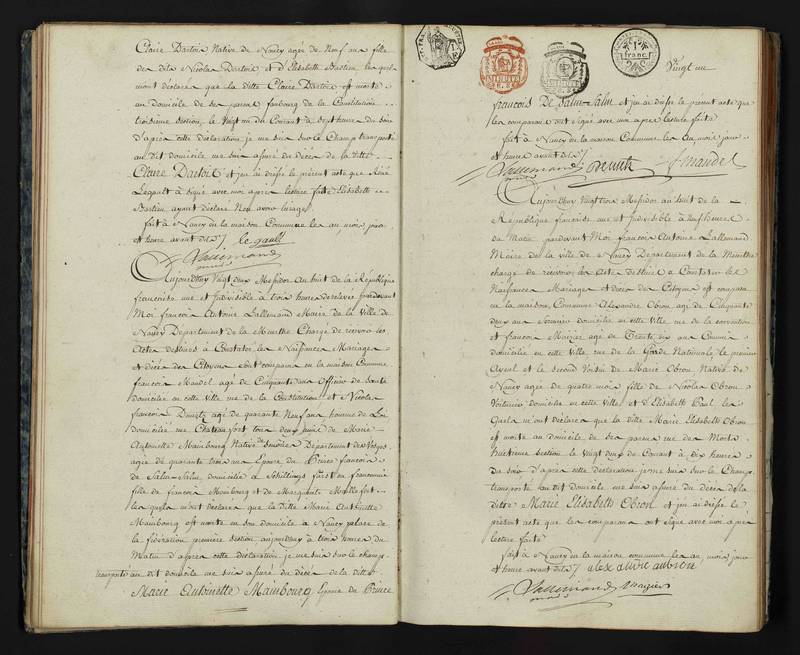 Claire Dartois Native de Nancy agée de Neuf ans fille
des dits Nicolas Dartois et d'Elisabeth Bastien les quels
mont déclaré que la ditte Claire Dartois est morte
au domicile de ses parens faubourg de la Constitution
troisieme Section, le vingt un du Courant à Sept heures du Soir
d'après cette déclaration je me suis sur le Champ transporté
au dit domicile me suis assuré du décès de la ditte
Claire Dartois et j'en ai dressé le présent acte que
Legault à signé avec moi après lecture faitte Elisabeth
Bastien ayant déclaré Non avoir l'usage
fait à Nancy en la maison Commune les an, mois jour
et heure avant dit le gault
Lallemand
Aujourd'huy Vingt deux Messidor an huit de la République
française une et Indivisible à trois heures de relevée pardevant
Moi françois Antoine Lallemand Maire de la Ville de
Nancy Département de la Meurthe Chargé de recevoir les
Actes destinés à Constater les Naissances Mariages
et décès des Citoyens est comparu en la maison Commune
françois Mandel agé de Cinquante ans Officier de Santé
domicilié en cette ville rue de la Constitution et Nicolas
françois agé de quarante Neuf ans homme de Loi
domicilié rue Chateaufort tous deux amis de Marie
Antoinette Mainbourg Native de Senones Département des Vosges
agée de quarante trois ans Epouse du Prince françois
de Salm-Salm domiciliée à Schillingsfürst en franconie
fille de françois Mainbourg et de Marguerite
les quels m'ont déclaré que la ditte Marie Antoinette
Mainbourg est morte en son domicile à Nancy place de
la fédération première Section aujourdhuy à trois heures du
Matin d'après cette déclaration je me suis sur le champ
transporté au dit domicile me suis assuré du décès de la ditte
Marie Antoinette Mainbourg Epouse du Prince
Vingt un
1 franc
françois De Salm-Salm et j'en ai dressé le présent acte que
les comparans ont signé avec moi après lecture faite
fait à Nancy en la maison Commune les an, mois jour
et heure avant dit
Lallemand Mandel
Aujourd'huy vingt trois Messidor an huit de la
République française une et Indivisible à Neuf heures
du Matin pardevant Moi françois Antoine Lallemand
Maire de la ville de Nancy Département de la Meurthe
chargé de recevoir les Actes destinés à Constater les
Naissances, Mariages et décès des Citoyens est comparu
en la maison Commune Alexandre Obron agé de Cinquante
deux ans domicilié en cette ville rue de la Convention
et françois Maizier agé de Trente six ans Commis
domicilié en cette ville rue de la Garde Nationale, le premier
Ayeul et le second Voisin de Marie Obron Native de
Nancy agée de quatre mois fille de Nicolas Obron
Voiturier domicilié en cette ville et d'Elisabeth Paul les
Quels m'ont déclaré que la ditte Marie Elisabeth Obron
est morte au domicile de ses parens rue des Morts
huitieme Section le vingt deux du Courant à dix heures
du Soir d'après cette déclaration je me suis sur le Champ
transporté au dit domicile me suis assuré du décès de la
ditte Marie Elisabeth Obron et j'en ai dressé le
présent acte que les comparans ont signé avec moi après
lecture faite
fait à Nancy en la maison commune les an, mois jour
et heure avant dit alexandre aubron
Lallemand Maizier